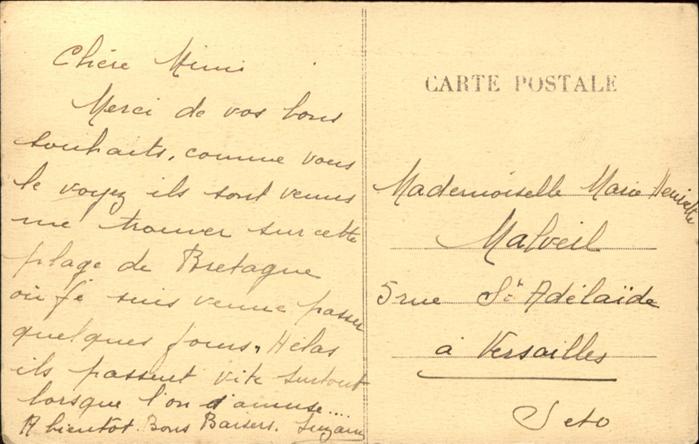 Chère Mimi
Merci de vos bons
souhaits, comme vous
le voyez ils sont venus
me trouver sur cette
plage de Bretagne
où je suis venue passer
quelques jours, Hélas
ils passent vite surtout
lorsque l'on s'amuse....
A bientot. Bons Baisers. Suzanne
CARTE POSTALE
Mademoiselle Marie Henriette
Malveil
5 rue St Adélaïde
à Versailles
S et O